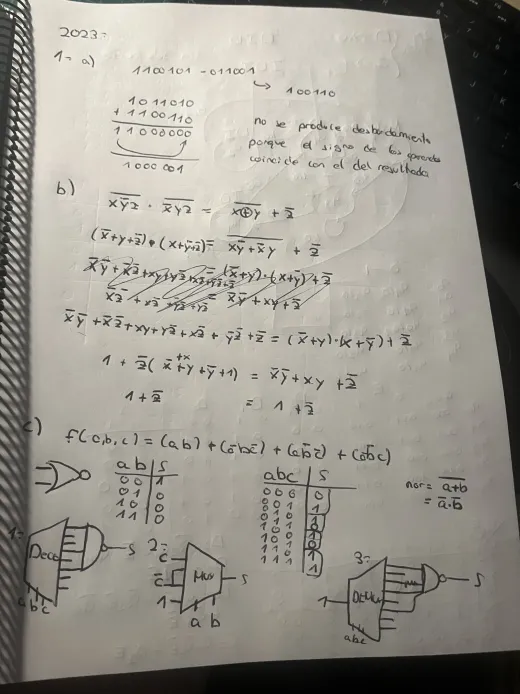 2023:
1- a)
1100101 - 011001
↳ 100110
1011010
+ 1100110
11000000
1000001
no se produce desbordamiento
porque el signo de los operandos
coincide con el del resultado
b)
\overline{x\bar{y}z} · \overline{\bar{x}yz} = \overline{x⊕y} + \bar{z}
(\bar{x}+y+\bar{z})·(x+\bar{y}+\bar{z}) = \overline{x\bar{y}+\bar{x}y} + \bar{z}
\bar{x}\bar{y}+\bar{x}\bar{z}+xy+y\bar{z}+x\bar{z}+\bar{y}\bar{z}+\bar{z} = (\bar{x}+y)·(x+\bar{y})+\bar{z}
1+\bar{z}(\bar{x}+x+y+\bar{y}+1) = \bar{x}\bar{y}+xy+\bar{z}
1+\bar{z} = 1+\bar{z}
c)
f(a,b,c) = (ab)+(\bar{a}b\bar{c})+(a\bar{b}\bar{c})+(\bar{a}\bar{b}c)
a b | S
0 0 | 1
0 1 | 0
1 0 | 0
1 1 | 0
abc | S
000 | 0
001 | 1
010 | 1
011 | 0
100 | 1
101 | 0
110 | 1
111 | 1
nor = \overline{a+b}
= \bar{a}·\bar{b}
1-
Deco
S
a b c
2-
c
\bar{c}
1
Mux
S
a b
3-
1
DeMux
S
abc